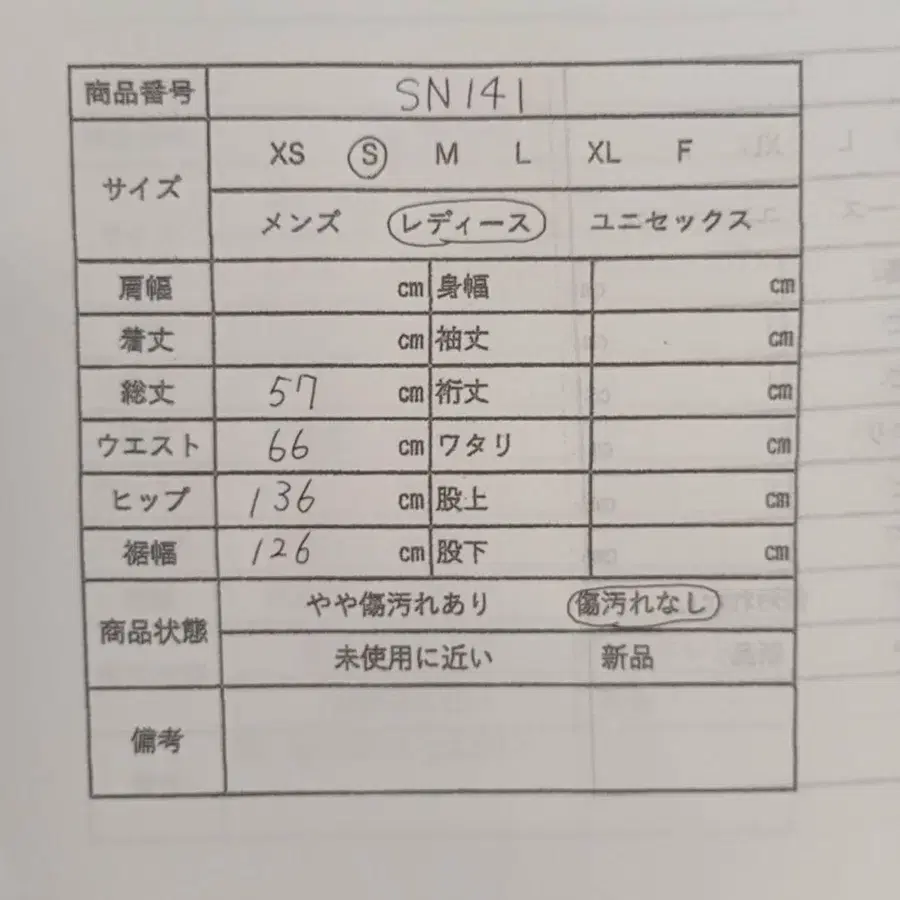 商品番号 SN141
サイズ XS S M L XL F
メンズ レディース ユニセックス
肩幅 cm 身幅 cm
着丈 cm 袖丈 cm
総丈 57 cm 裄丈 cm
ウエスト 66 cm ワタリ cm
ヒップ 136 cm 股上 cm
裾幅 126 cm 股下 cm
商品状態 やや傷汚れあり 傷汚れなし
未使用に近い 新品
備考